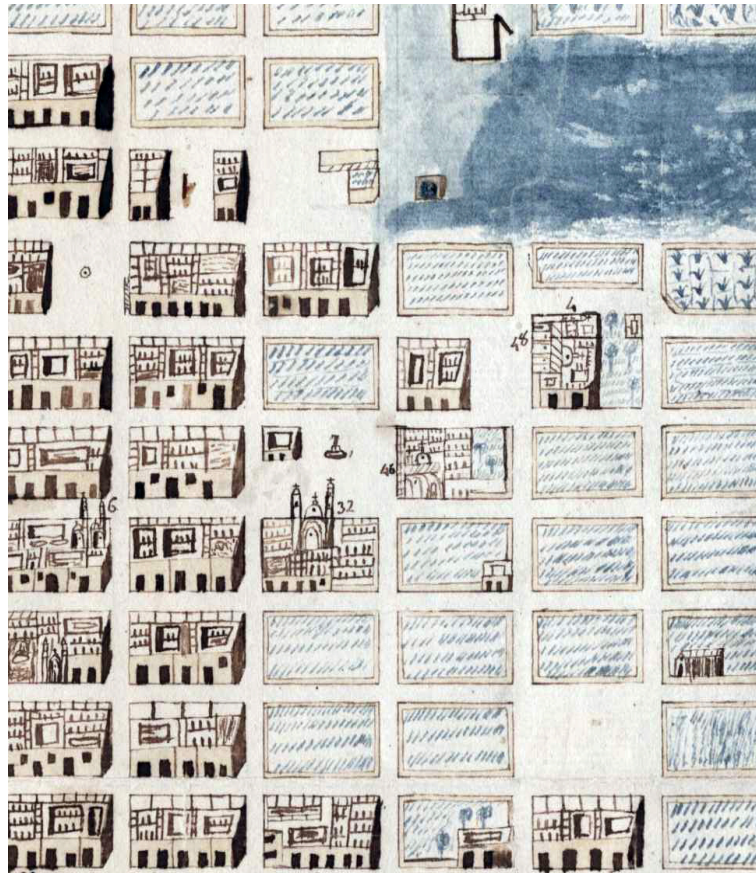 4
48
46
6
32